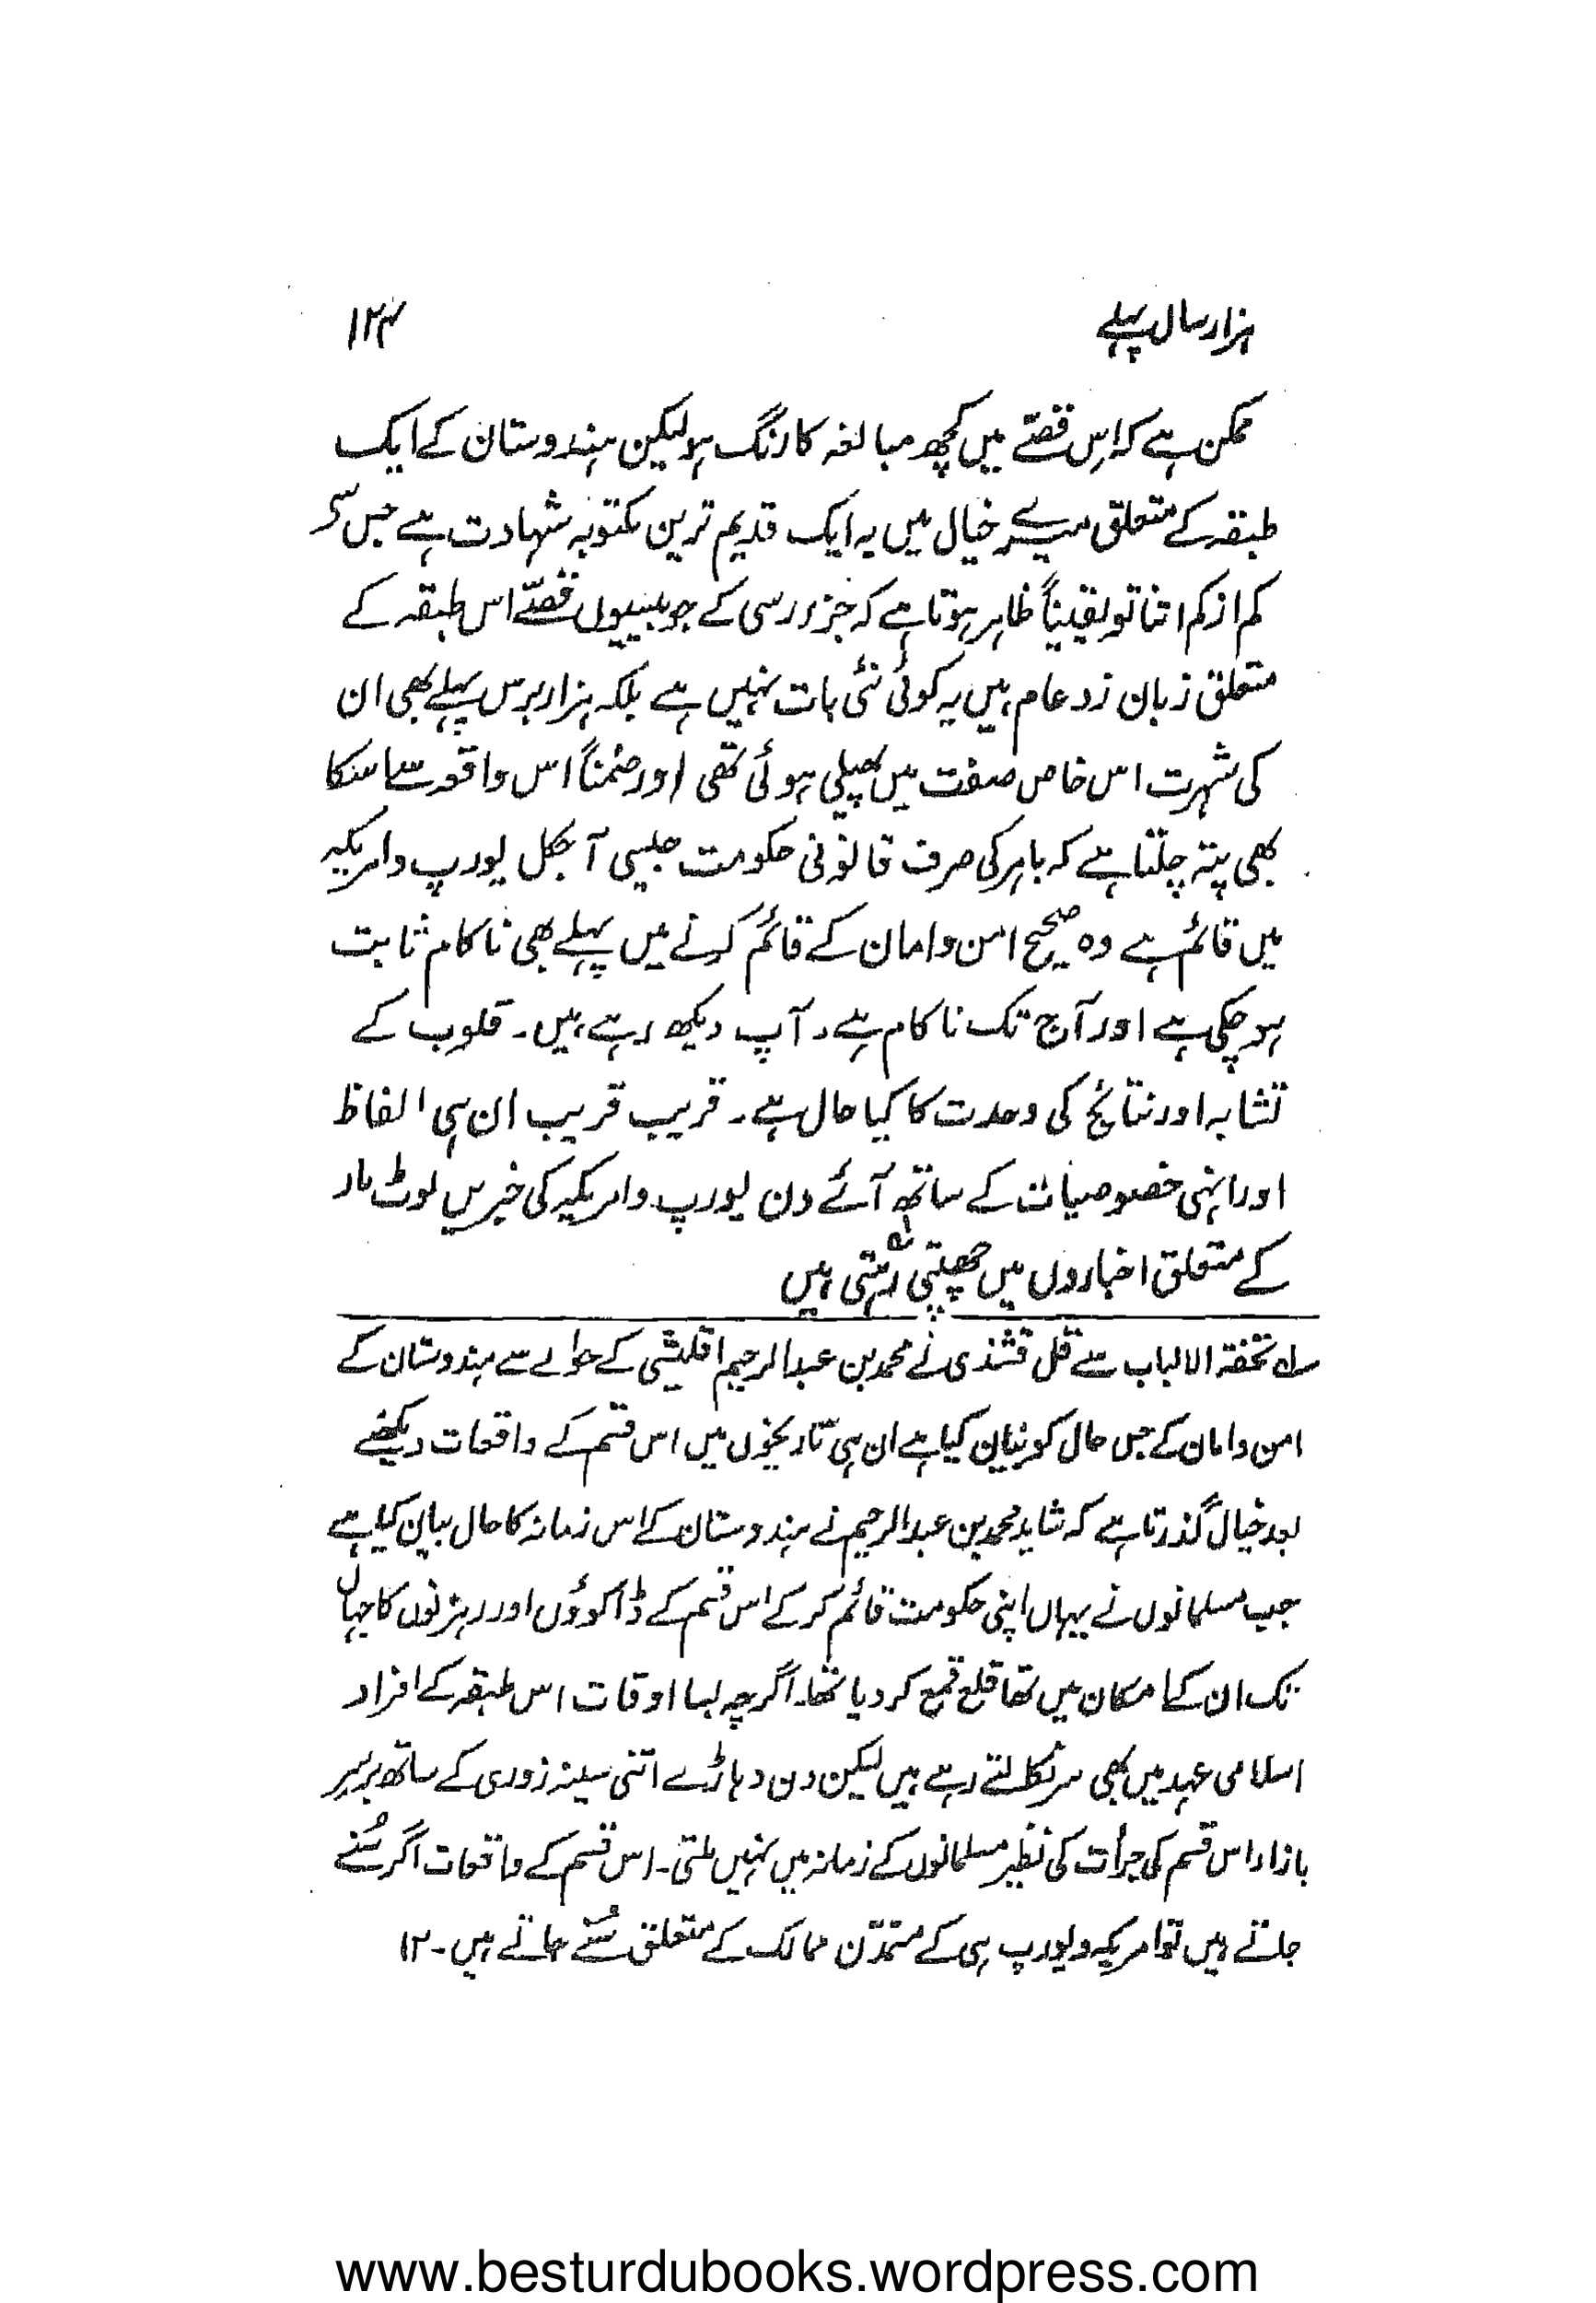 ہزار سال پہلے
۱۲۴
ممکن ہے کہ اِس قصّے میں کچھ مبالغہ کا رنگ ہو لیکن ہندوستان کے ایک
طبقہ کے متعلق میرے خیال میں یہ ایک قدیم ترین مکتوبہ شہادت ہے جس سے
کم از کم اتنا تو یقیناً ظاہر ہوتا ہے کہ جزورسی کے جو بیسیوں قصّے اس طبقہ کے
متعلق زبان زد عام ہیں یہ کوئی نئی بات نہیں ہے بلکہ ہزار برس پہلے بھی ان
کی شہرت اس خاص صفت میں پھیلی ہوئی تھی اور ضمناً اس واقعہ سے اسکا
بھی پتہ چلتا ہے کہ باہر کی صرف قانونی حکومت جیسی آجکل یورپ و امریکہ
میں قائم ہے وہ صحیح امن و امان کے قائم کرنے میں پہلے بھی ناکام ثابت
ہو چکی ہے اور آج تک ناکام ہے۔ آپ دیکھ رہے ہیں۔ قلوب کے
تشابہ اور نتائج کی وحدت کا کیا حال ہے۔ قریب قریب ان ہی الفاظ
اور انہی خصوصیات کے ساتھ آئے دن یورپ و امریکہ کی خبریں لوٹ مار
کے متعلق اخباروں میں چھپتی رہتی ہیں
لہ تحفۃ الالباب سے قل قشندی نے محمد بن عبدالرحیم اقلیشی کے حوالے سے ہندوستان کے
امن و امان کے جس حال کو بیان کیا ہے ان ہی تاریخوں میں اس قسم کے واقعات دیکھنے
بعد خیال گذرتا ہے کہ شاید محمد بن عبدالرحیم نے ہندوستان کے اس زمانہ کا حال بیان کیا ہے
جب مسلمانوں نے یہاں اپنی حکومت قائم کر کے اس قسم کے ڈاکوؤں اور رہزنوں کا جہاں
تک ان کے امکان میں تھا قلع قمع کر دیا تھا۔ اگرچہ بسا اوقات اس طبقہ کے افراد
اسلامی عہد میں بھی سر نکالتے رہے ہیں لیکن دن دہاڑے اتنی سینہ زوری کے ساتھ برسر
بازار اس قسم کی جرأت کی نظیر مسلمانوں کے زمانہ میں نہیں ملتی۔ اس قسم کے واقعات اگر سُنے
جاتے ہیں تو امریکہ و یورپ ہی کے متمدّن ممالک کے متعلق سُنے جاتے ہیں۔ ۱۲
www.besturdubooks.wordpress.com